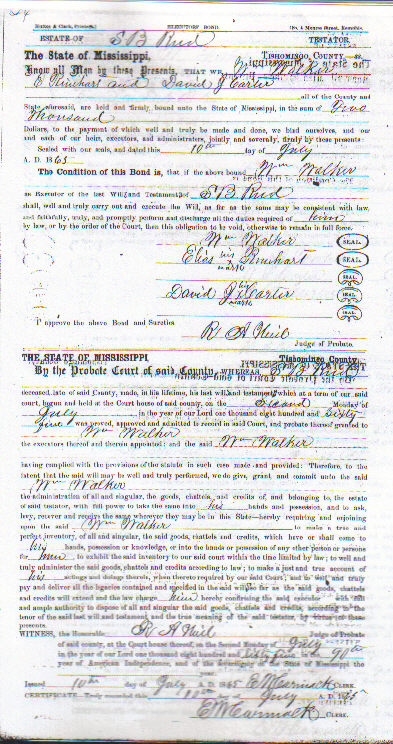 ESTATE OF S B Reid TESTATOR.
The State of Mississippi, TISHOMINGO COUNTY
Know all Men by these Presents, THAT WE Wm Walker
E Rinehart and David J Carter
all of the County and
State aforesaid, are held and firmly bound unto the State of Mississippi, in the sum of
Thousand
Dollars, to the payment of which well and truly be made and done, we bind ourselves, and our
and each of our heirs, executors, and administrators, jointly and severally, firmly by these presents:
Sealed with our seals, and dated this 10th day of July
A. D. 1865
The Condition of this Bond is, that if the above bound Wm Walker
as Executor of the last Will and Testament of S B Reid
shall, well and truly carry out and execute the Will, so far as the same may be consistent with law,
and faithfully, truly, and promptly perform and discharge all the duties required of him
by law, or by the order of the Court, then this obligation to be void, otherwise to remain in full force.
Wm Walker SEAL.
Elias his x mark Rinehart SEAL.
SEAL.
David J his x mark Carter SEAL.
SEAL.
I approve the above Bond and Sureties
R A Neil
Judge of Probate.
THE STATE OF MISSISSIPPI, Tishomingo County
By the Probate Court of said County, WHEREAS, S B Reid
deceased, late of said County, made, in his lifetime, his last will and testament, which at a term of our said
court, begun and held at the Court house of said county, on the Second Monday of
July in the year of our Lord one thousand eight hundred and Sixty
five was proved, approved and admitted to record in said Court, and probate thereof granted to
Wm Walker
the executor thereof and therein appointed: and the said Wm Walker
having complied with the provisions of the statute in such case made and provided: Therefore, to the
intent that the said will may be well and truly performed, we do give, grant and commit unto the said
Wm Walker
the administration of all and singular, the goods, chattels and credits of, and belonging to, the estate
of said testator, with full power to take the same into his hands and possession, and to ask,
levy, recover and receive the same wherever they may be in this State—hereby requiring and enjoining
upon the said Wm Walker to make a true and
perfect inventory, of all and singular, the said goods, chattels and credits, which have or shall come to
his hands, possession or knowledge, or into the hands or possession of any other person or persons
for him exhibit the said inventory to our said court within the time limited by law; to well and
truly administer the said goods, chattels and credits according to law; to make a just and true account of
his actings and doings therein, when thereto required by our said Court; and to well and truly
pay and deliver all the legacies contained and specified in the said will, so far as the said goods, chattels
and credits will extend and the law charge him hereby confirming the said executor with full
and ample authority to dispose of all and singular the said goods, chattels and credits, according to the
tenor of the said last will and testament, and the true meaning of the said testator, by virtue of these
presents.
WITNESS, the Honorable R A Neil Judge of Probate
of said county, at the Court house thereof, on the Second Monday of July
in the year of our Lord one thousand eight hundred and Sixty five in the 90th
year of American Independence, and of the Sovereignty of the State of Mississippi the
year.
Issued 10th day of July A. D. 1865 E W Carmack CLERK.
CERTIFICATE. Truly recorded this 10th day of July A. D. 1865
E W Carmack CLERK.